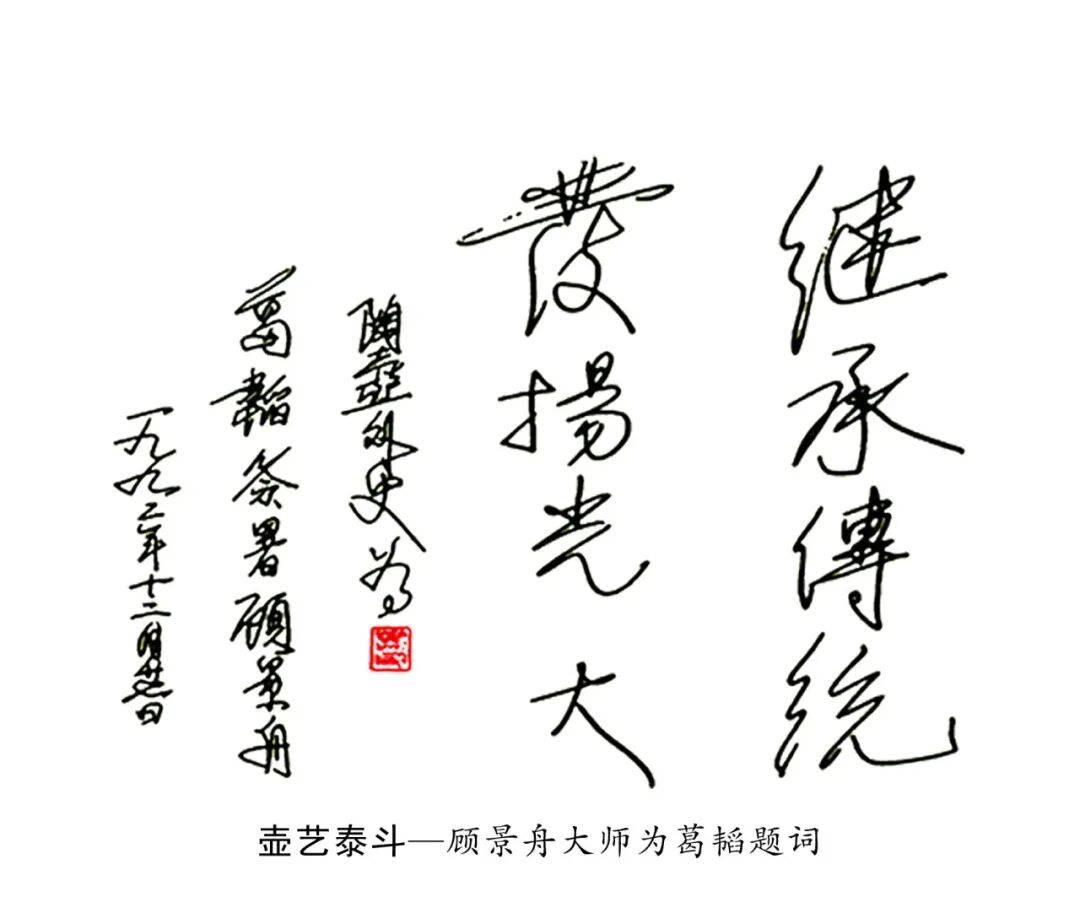 继承傳統
發揚光大
陶壺外史为
葛韜署顾景舟
一九九二年十二月日
壶艺泰斗—顾景舟大师为葛韬题词